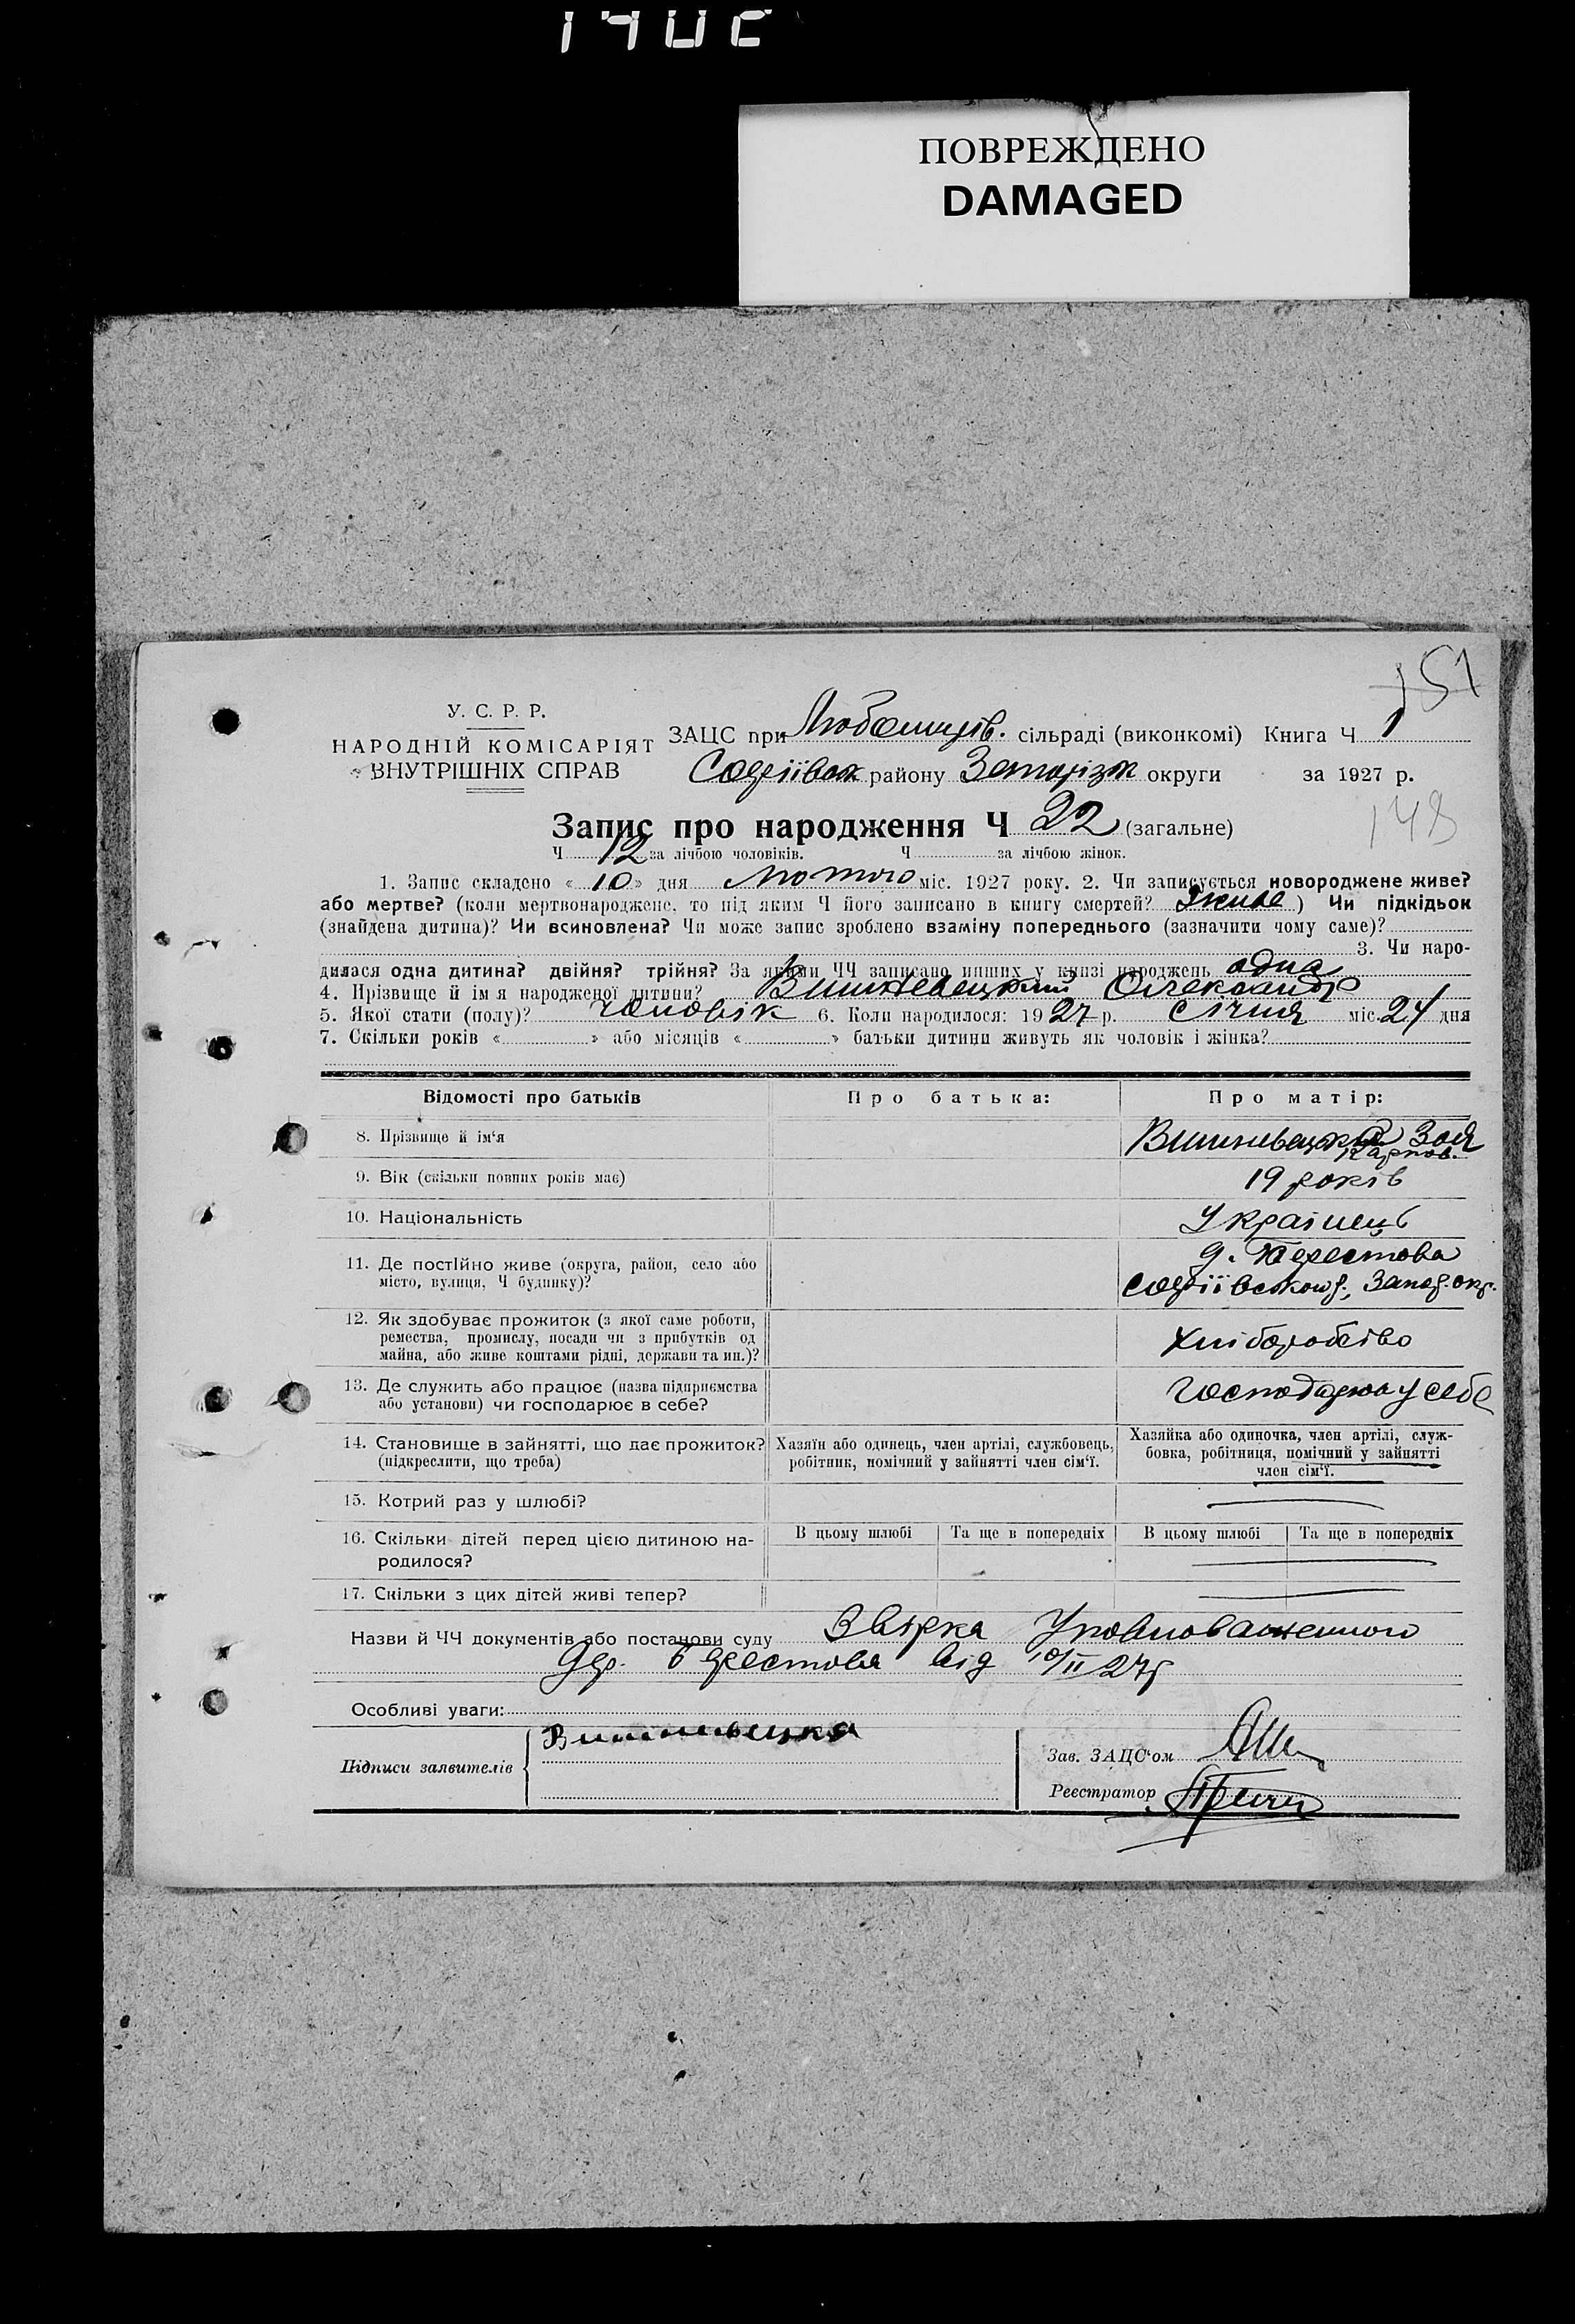 ПОВРЕЖДЕНО
DAMAGED
151
У. С. Р. Р.
НАРОДНІЙ КОМІСАРІЯТ
ВНУТРІШНІХ СПРАВ
ЗАЦС при сільраді (виконкомі) Книга Ч 1
Софіївськ району Запорізк округи за 1927 р.
148
Запис про народження Ч 22 (загальне)
Ч 12 за лічбою чоловіків. Ч за лічбою жінок.
1. Запис складено « 10 » дня лютого міс. 1927 року. 2. Чи записується новороджене живе?
або мертве? (коли мертвонароджене, то під яким Ч його записано в книгу смертей? живе ) Чи підкідьок
(знайдена дитина)? Чи всиновлена? Чи може запис зроблено взаміну попереднього (зазначити чому саме)?
3. Чи наро-
дилася одна дитина? двійня? трійня? За якими ЧЧ записано инших у книзі народжень одна
4. Прізвище й ім'я народженої дитини? Вишневецький Олександр
5. Якої стати (полу)? чоловік 6. Коли народилося: 1927 р. січня міс. 24 дня
7. Скільки років « » або місяців « » батьки дитини живуть як чоловік і жінка?
Відомості про батьків Про батька: Про матір:
8. Прізвище й ім'я Вишнивецька Зоя
Карпов.
9. Вік (скільки повних років має) 19 років
10. Національність Українець
11. Де постійно живе (округа, район, село або д. Берестова
місто, вулиця, Ч будинку)? Софіївськог р., Запор. окр.
12. Як здобуває прожиток (з якої саме роботи,
ремества, промислу, посади чи з прибутків од
майна, або живе коштами рідні, держави та ин.)? Хліборобство
13. Де служить або працює (назва підприємства
або установи) чи господарює в себе? Господарює у себе
14. Становище в зайнятті, що дає прожиток?
(підкреслити, що треба)
Хазяїн або одинець, член артілі, службовець,
робітник, помічний у зайнятті член сім'ї.
Хазяйка або одиночка, член артілі, служ-
бовка, робітниця, помічний у зайнятті
член сім'ї.
15. Котрий раз у шлюбі?
16. Скільки дітей перед цією дитиною на-
родилося?
В цьому шлюбі Та ще в попередніх В цьому шлюбі Та ще в попередніх
17. Скільки з цих дітей живі тепер?
Назви й ЧЧ документів або постанови суду Звірка Уповноваженного
Дер. Берестова від 10/II 27р
Особливі уваги:
Підписи заявителів Вишнивецька
Зав. ЗАЦС'ом
Реєстратор